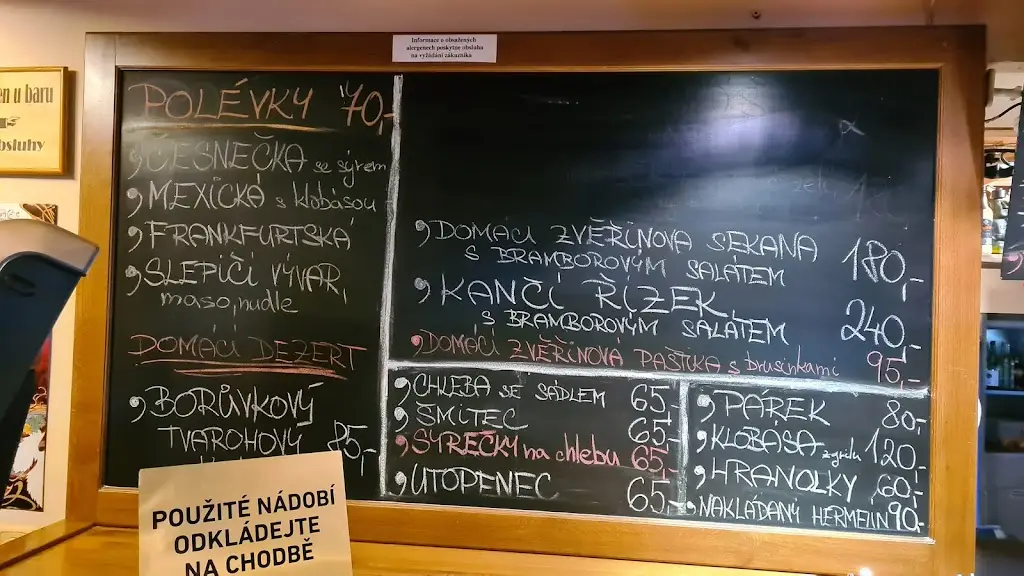 Informace o obsažených
alergenech poskytne obsluha
na vyžádání zákazníka
en u baru
obsluhy
POLÉVKY 70,-
ČESNEČKA se sýrem
MEXICKÁ s klobásou
FRANKFURTSKÁ
SLEPIČÍ VÝVAR,
maso, nudle
DOMÁCÍ DEZERT
BORŮVKOVÝ
TVAROHOVÝ 85,-
DOMÁCÍ ZVĚŘINOVÁ SEKANÁ 180,-
S BRAMBOROVÝM SALÁTEM
KANČÍ ŘÍZEK 240,-
S BRAMBOROVÝM SALÁTEM
DOMÁCÍ ZVĚŘINOVÁ PAŠTIKA s brusinkami 95,-
CHLEBA SE SÁDLEM 65,-
ŠMITEC 65,-
SYREČKY na chlebu 65,-
UTOPENEC 65,-
PÁREK 80,-
KLOBÁSA z grilu 120,-
HRANOLKY 60,-
NAKLÁDANÝ HERMELÍN 90,-
POUŽITÉ NÁDOBÍ
ODKLÁDEJTE
NA CHODBĚ